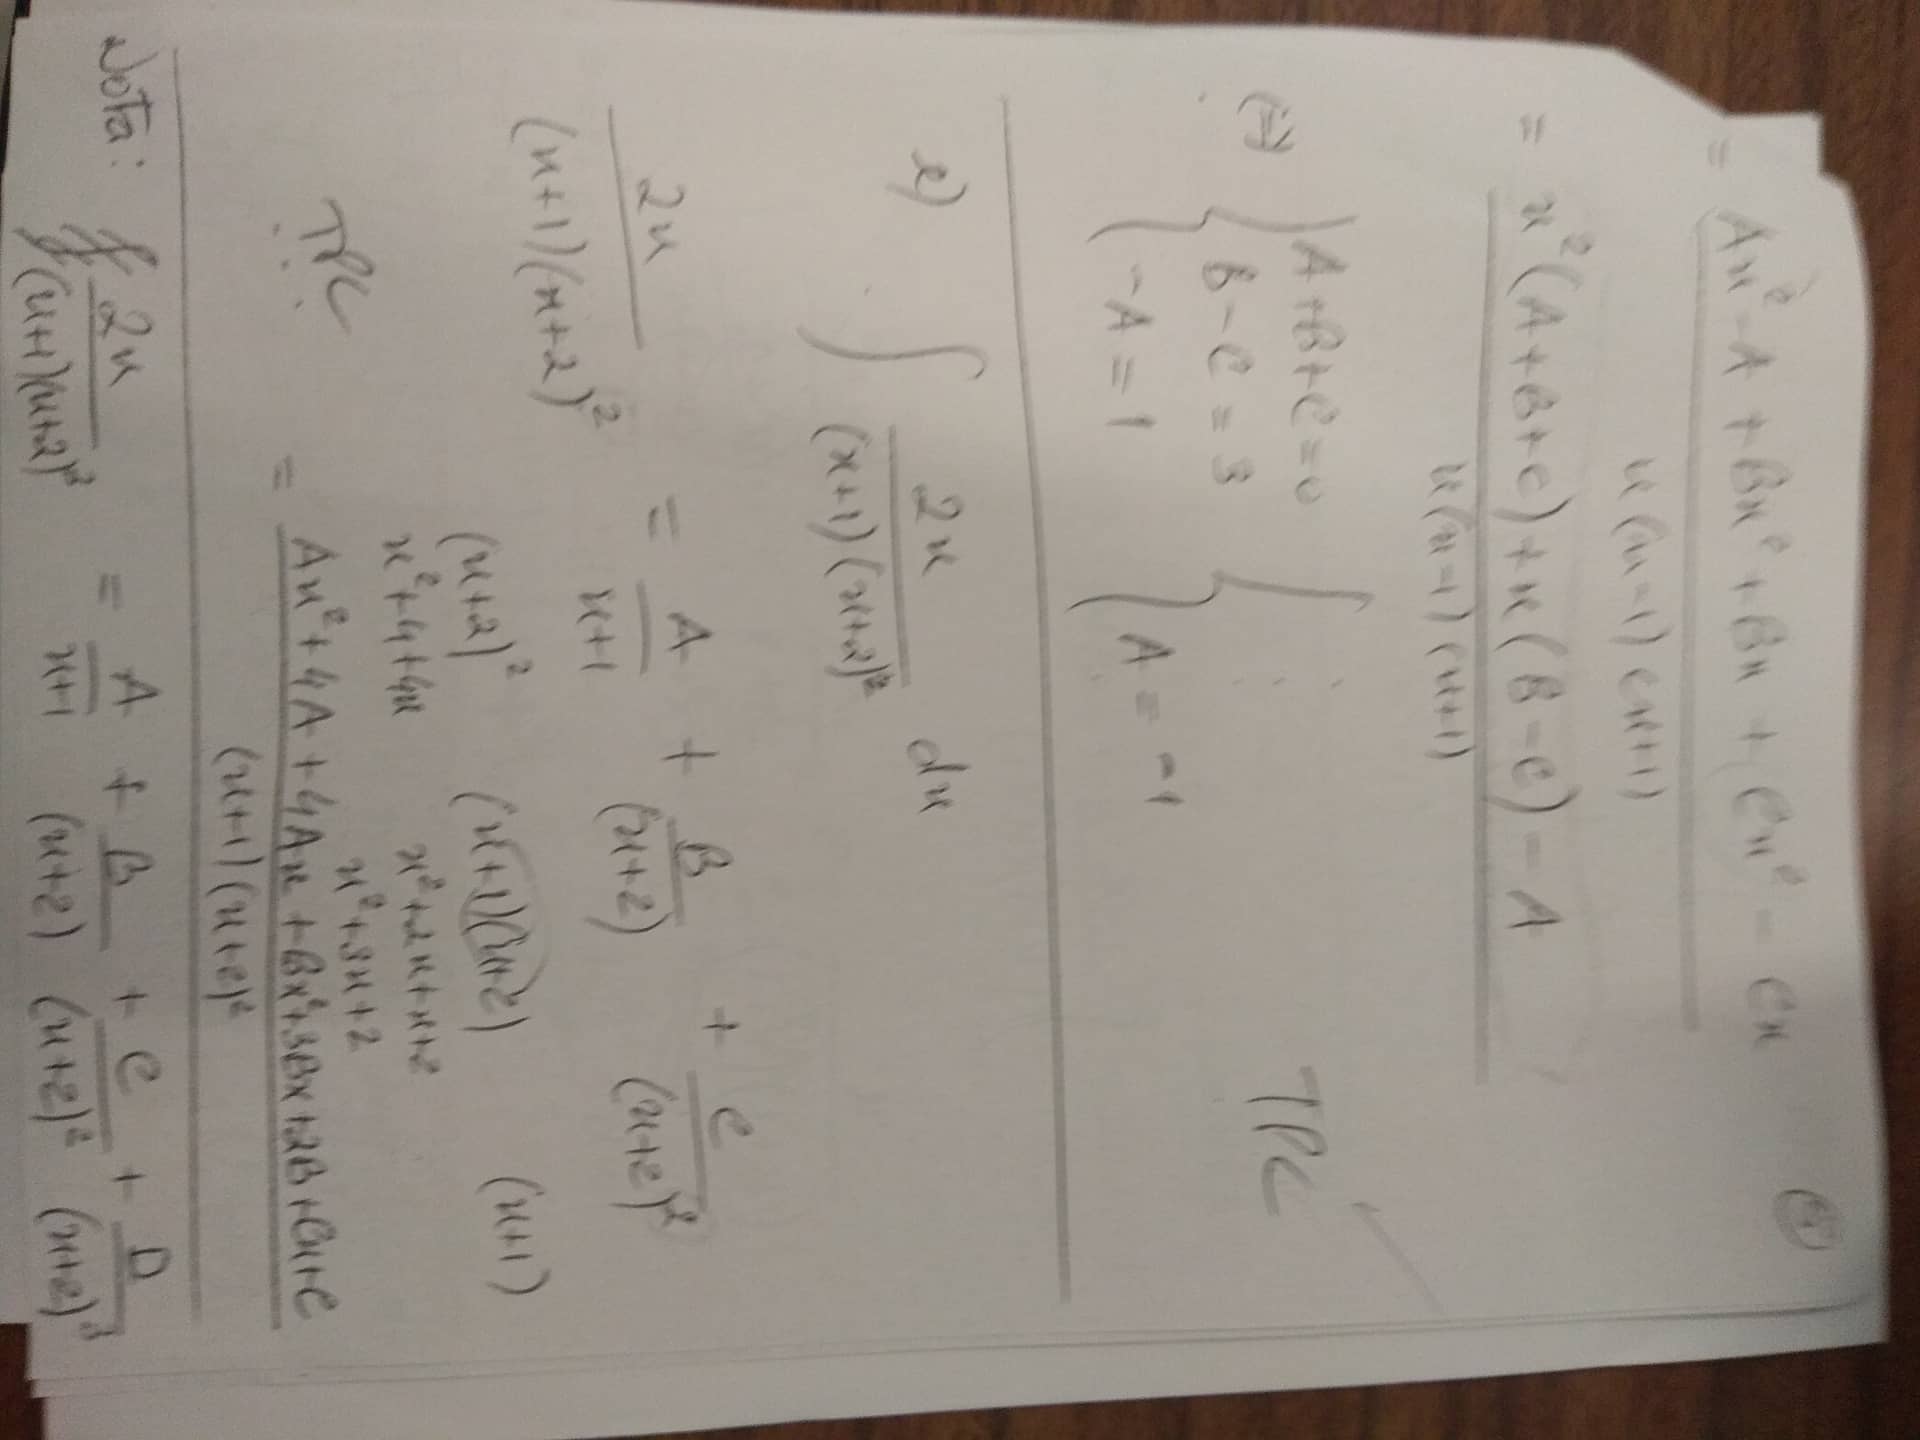 ④
= Ax² - A + Bx² + Bx + Cx² - Cx
x(x-1)(x+1)
= x²(A+B+C) + x(B-C) - A
x(x-1)(x+1)
(=) { A+B+C=0 { ⋮ TPC
B-C = 3
-A = 1 A = -1
e) ∫ 2x dx
(x+1)(x+2)²
2x = A + B + C
(x+1)(x+2)² x+1 (x+2) (x+2)²
(x+2)² (x+1)(x+2) (x+1)
x²+4+4x x²+2x+x+2
x²+3x+2
TPC ...
= Ax²+4A+4Ax+Bx²+3Bx+2B+Cx+C
(x+1)(x+2)²
Nota: 2x = A + B + C + D
(x+1)(x+2)³ x+1 (x+2) (x+2)² (x+2)³